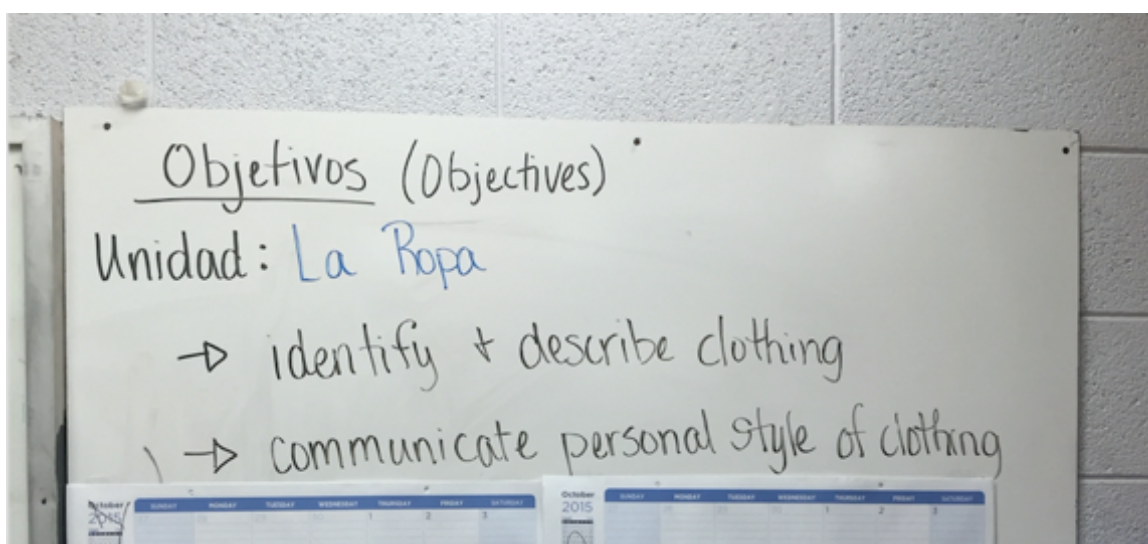 Objetivos (Objectives)
Unidad: La Ropa
→ identify + describe clothing
→ communicate personal style of clothing
October
2015
SUNDAY MONDAY TUESDAY WEDNESDAY THURSDAY FRIDAY SATURDAY
1 2 3
October
2015
SUNDAY MONDAY TUESDAY WEDNESDAY THURSDAY FRIDAY SATURDAY
1 2 3